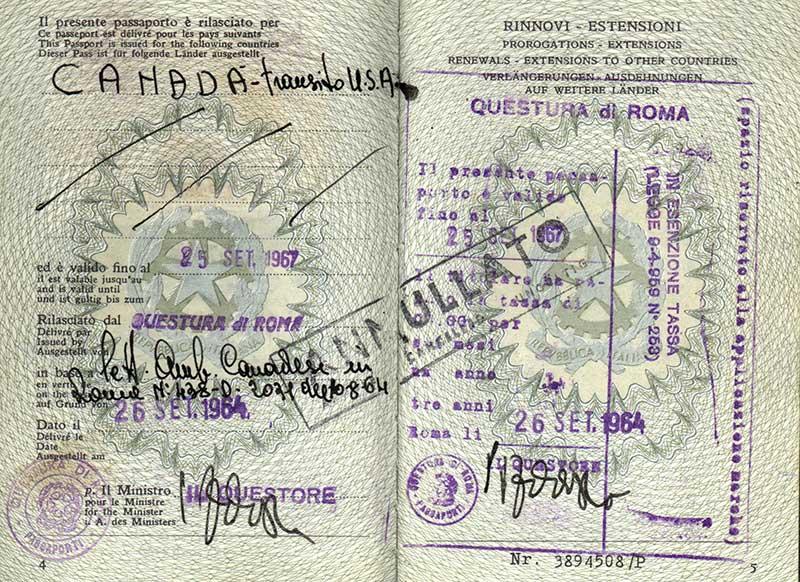 Il presente passaporto è rilasciato per
Ce passeport est délivré pour les pays suivants
This Passport is issued for the following countries
Dieser Pass ist für folgende Länder ausgestellt
CANADA - transito U.S.A.
25 SET. 1967
ed è valido fino al
il est valable jusqu'au
and is valid until
und ist gültig bis zum
Rilasciato dal QUESTURA di ROMA
Délivré par
Issued by
Ausgestellt von
in base a Lett. Amb. Canadese in
en vertu
on the
auf Grund von
26 SET. 1964
Dato il
Délivré le
Date
Ausgestellt am
p. Il Ministro IL QUESTORE
pour le Ministre
for the Minister
i. A. des Ministers
QUESTURA DI
PASSAPORTI
4
RINNOVI - ESTENSIONI
PROROGATIONS - EXTENSIONS
RENEWALS - EXTENSIONS TO OTHER COUNTRIES
VERLÄNGERUNGEN - AUSDEHNUNGEN
AUF WEITERE LÄNDER
QUESTURA di ROMA
Il presente passa-
porto è valido
fino al
25 1967
tassa di
per
mesi
un anno
tre anni
Roma li 26 SET. 1964
IL QUESTORE
QUESTURA DI ROMA
PASSAPORTI
IN ESENZIONE TASSA
(spazio riservato alla applicazione marche)
ANNULLATO
REPUBBLICA ITALIANA
Nr. 3894508/P
5